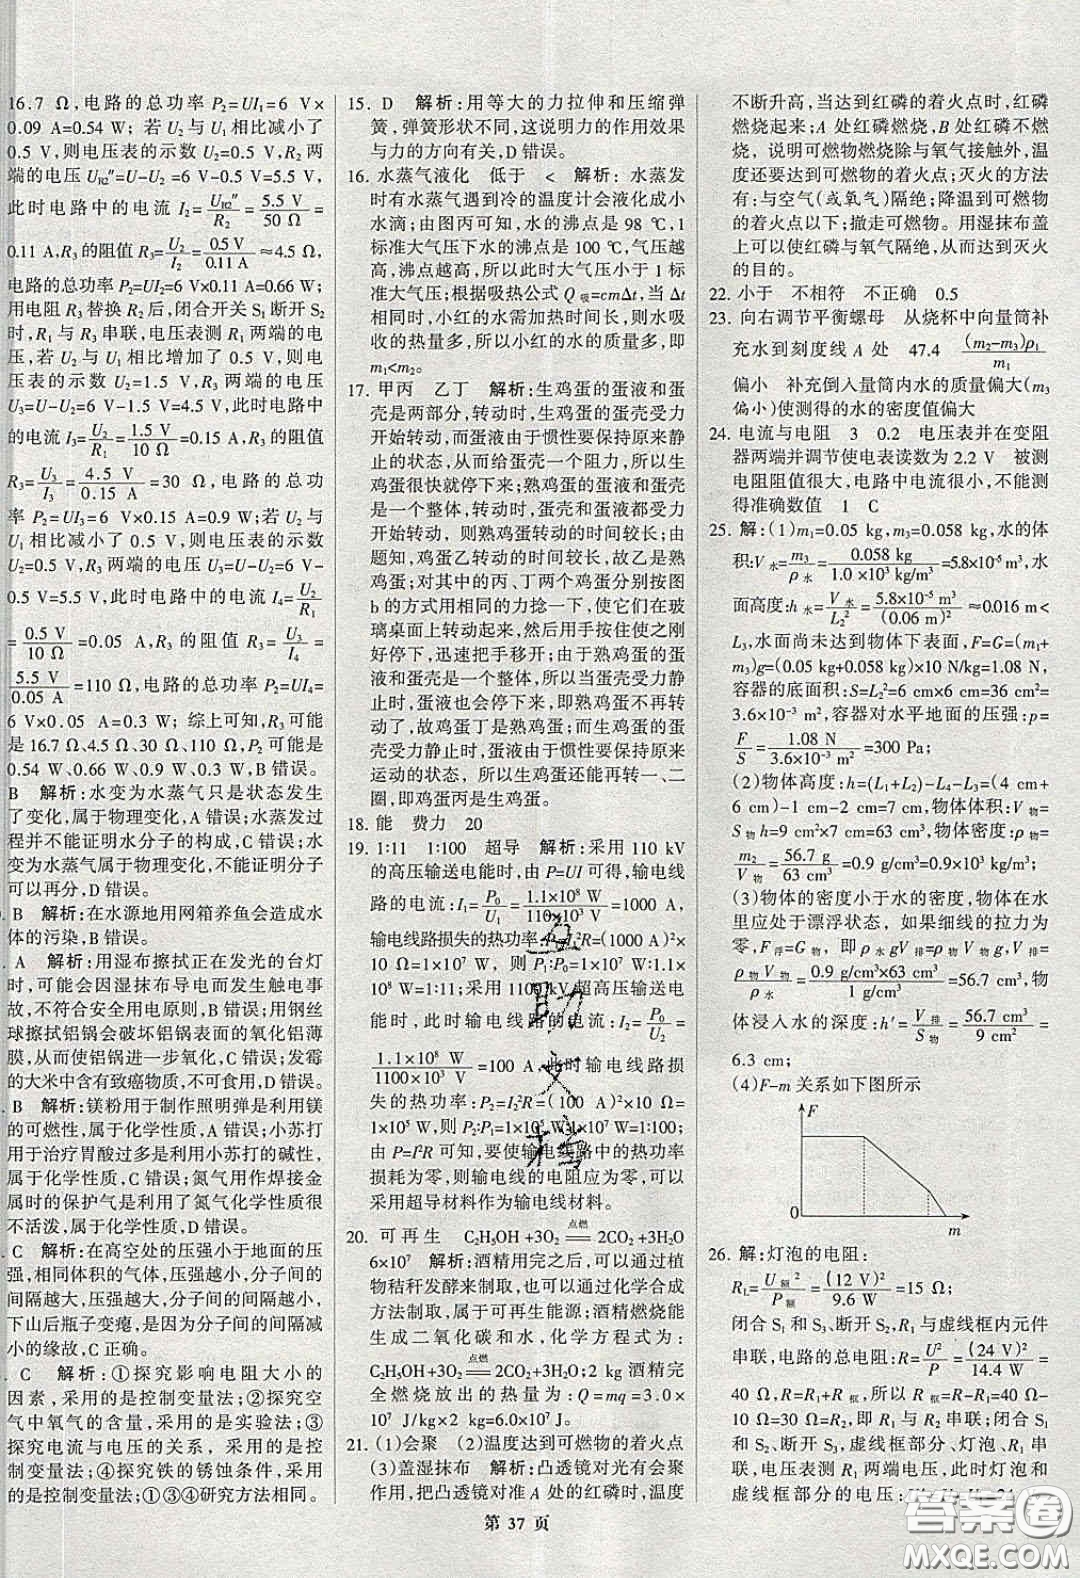 16.7 Ω,电路的总功率 P₂=UI₁=6 V×
0.09 A=0.54 W;若 U₂与 U₁相比减小了
0.5 V,则电压表的示数 U₂=0.5 V,R₂两
端的电压 U_R2″=U−U₂=6 V−0.5 V=5.5 V,
此时电路中的电流 I₂=U_R2″/R₂=5.5 V/50 Ω=
0.11 A,R₃的阻值 R₃=U₂/I₂=0.5 V/0.11 A≈4.5 Ω,
电路的总功率 P₂=UI₂=6 V×0.11 A=0.66 W;
用电阻 R₃替换 R₂后,闭合开关 S₁断开 S₂
时,R₁与 R₃串联,电压表测 R₁两端的电
压,若 U₂与 U₁相比增加了 0.5 V,则电
压表的示数 U₂=1.5 V,R₃两端的电压
U₃=U−U₂=6 V−1.5 V=4.5 V,此时电路中
的电流 I₃=U₂/R₁=1.5 V/10 Ω=0.15 A,R₃的阻值
R₃=U₃/I₃=4.5 V/0.15 A=30 Ω,电路的总功
率 P₂=UI₃=6 V×0.15 A=0.9 W;若 U₂与
U₁相比减小了 0.5 V,则电压表的示数
U₂=0.5 V,R₃两端的电压 U₃=U−U₂=6 V−
0.5 V=5.5 V,此时电路中的电流 I₄=U₂/R₁
=0.5 V/10 Ω=0.05 A,R₃的阻值 R₃=U₃/I₄=
5.5 V/0.05 A=110 Ω,电路的总功率 P₂=UI₄=
6 V×0.05 A=0.3 W;综上可知,R₃可能
是 16.7 Ω、4.5 Ω、30 Ω、110 Ω,P₂可能是
0.54 W、0.66 W、0.9 W、0.3 W,B 错误。
B 解析:水变为水蒸气只是状态发生
了变化,属于物理变化,A 错误;水蒸发过
程并不能证明水分子的构成,C 错误;水
变为水蒸气属于物理变化,不能证明分子
可以再分,D 错误。
B 解析:在水源地用网箱养鱼会造成水
体的污染,B 错误。
A 解析:用湿布擦拭正在发光的台灯
时,可能会因湿抹布导电而发生触电事
故,不符合安全用电原则,B 错误;用钢丝
球擦拭铝锅会破坏铝锅表面的氧化铝薄
膜,从而使铝锅进一步氧化,C 错误;发霉
的大米中含有致癌物质,不可食用,D 错误。
B 解析:镁粉用于制作照明弹是利用镁
的可燃性,属于化学性质,A 错误;小苏打
用于治疗胃酸过多是利用小苏打的碱性,
属于化学性质,C 错误;氮气用作焊接金
属时的保护气是利用了氮气化学性质很
不活泼,属于化学性质,D 错误。
C 解析:在高空处的压强小于地面的压
强,相同体积的气体,压强越小,分子间的
间隔越大,压强越大,分子间的间隔越小,
下山后瓶子变瘪,是因为分子间的间隔减
小的缘故,C 正确。
C 解析:①探究影响电阻大小的
因素,采用的是控制变量法;②探究空
气中氧气的含量,采用的是实验法;③
探究电流与电压的关系,采用的是控
制变量法;④探究铁的锈蚀条件,采用
的是控制变量法;①③④研究方法相同。
15. D 解析:用等大的力拉伸和压缩弹
簧,弹簧形状不同,这说明力的作用效果
与力的方向有关,D 错误。
16. 水蒸气液化 低于 < 解析:水蒸发
时有水蒸气遇到冷的温度计会液化成小
水滴;由图丙可知,水的沸点是 98 ℃,1
标准大气压下水的沸点是 100 ℃,气压越
高,沸点越高,所以此时大气压小于 1 标
准大气压;根据吸热公式 Q吸=cmΔt,当 Δt
相同时,小红的水需加热时间多,则水吸
收的热量多,所以小红的水的质量多,即
m₁<m₂。
17. 甲丙 乙丁 解析:生鸡蛋的蛋液和蛋
壳是两部分,转动时,生鸡蛋的蛋壳受力
开始转动,而蛋液由于惯性要保持原来静
止的状态,从而给蛋壳一个阻力,所以生
鸡蛋很快就停下来;熟鸡蛋的蛋液和蛋壳
是一个整体,转动时,蛋壳和蛋液都受力
开始转动,所以熟鸡蛋转动的时间较长;由
题知,鸡蛋乙转动的时间较长,故乙是熟
鸡蛋;对其中的丙、丁两个鸡蛋分别按图
b 的方式用相同的力捻一下,使它们在玻
璃桌面上转动起来,然后用手按住使之刚
好停下,迅速把手移开;由于熟鸡蛋的蛋
液和蛋壳是一个整体,所以使它停下时,
蛋壳停止,蛋液也会停下来,因此不会再
转动了,故鸡蛋丁是熟鸡蛋;而生鸡蛋的蛋
壳受力静止时,蛋液由于惯性要保持原来
运动的状态,所以生鸡蛋还能再转一、二
圈,即鸡蛋丙是生鸡蛋。
18. 能 费力 20
19. 1:11 1:100 超导 解析:采用 110 kV
的高压输送电能时,由 P=UI 可得,输电线
路的电流:I₁=P₀/U₁=1.1×10⁸ W/110×10³ V=1000 A,
输电线路损失的热功率:P₁=I₁²R=(1000 A)²×
10 Ω=1×10⁷ W,则 P₁:P₀=1×10⁷ W:1.1×
10⁸ W=1:11;采用 1100 kV 超高压输送电
能时,此时输电线路的电流:I₂=P₀/U₂=
1.1×10⁸ W/1100×10³ V=100 A,此时输电线路损
失的热功率:P₂=I₂²R=(100 A)²×10 Ω
=1×10⁵ W,则 P₂:P₁=1×10⁵ W:1×10⁷ W=1:100;
由 P=I²R 可知,要使输电线路中的热功率
损耗为零,输电线的电阻应为零,所以可以
采用超导材料作为输电线材料。
20. 可再生 C₂H₅OH+3O₂=点燃=2CO₂+3H₂O
6×10⁷ 解析:酒精用完之后,可以通过植
物秸秆发酵来制取,也可以通过化学合成
方法制取,属于可再生能源;酒精燃烧能
生成二氧化碳和水,化学方程式为:
C₂H₅OH+3O₂=点燃=2CO₂+3H₂O;2 kg 酒精完
全燃烧放出的热量为:Q=mq=3.0×
10⁷ J/kg×2 kg=6.0×10⁷ J。
21. (1)会聚 (2)温度达到可燃物的着火点
(3)盖湿抹布 解析:凸透镜对光有会聚
作用,把凸透镜对准 A 处的红磷时,温度
不断升高,当达到红磷的着火点时,红磷
燃烧起来;A 处红磷燃烧,B 处木炭不燃
烧,说明可燃物燃烧除与氧气接触外,温
度还必须达到可燃物的着火点;灭火的方法
有:与空气(或氧气)隔绝;降温到可燃物
的着火点以下;撤走可燃物。用湿抹布盖
上可以使红磷与氧气隔绝,从而达到灭火
的目的。
22. 小于 不相符 不正确 0.5
23. 向右调节平衡螺母 从烧杯中向量筒补
充水到刻度线 A 处 47.4 (m₂−m₃)ρ₁/m₁
偏小 补充倒入量筒内水的质量偏大(m₃
偏小)使测得的水的密度值偏大
24. 电流与电阻 3 0.2 电压表并在变阻
器两端并调节使电表读数为 2.2 V 被测
电阻阻值很大,电路中电流很小,不能测
得准确数值 1 C
25. 解:(1)m₁=0.05 kg,m₃=0.058 kg,水的体
积:V水=m₃/ρ水=0.058 kg/1.0×10³ kg/m³=5.8×10⁻⁵ m³,水
面高度:h水=V水/L₂²=5.8×10⁻⁵ m³/(0.06 m)²≈0.016 m<
L₃,水面尚未达到物体下表面,F=G=(m₁+
m₃)g=(0.05 kg+0.058 kg)×10 N/kg=1.08 N,
容器的底面积:S=L₂²=6 cm×6 cm=36 cm²=
3.6×10⁻³ m²,容器对水平地面的压强:p=
F/S=1.08 N/3.6×10⁻³ m²=300 Pa;
(2)物体高度:h=(L₁+L₂)−L₄−L₃=(4 cm+
6 cm)−1 cm−2 cm=7 cm,物体体积:V物=
S物h=9 cm²×7 cm=63 cm³,物体密度:ρ物=
m₂/V物=56.7 g/63 cm³=0.9 g/cm³=0.9×10³ kg/m³;
(3)物体的密度小于水的密度,物体在水
里应处于漂浮状态,如果细线的拉力为
零,F浮=G物,即 ρ水gV排=ρ物gV物,V排=
ρ物V物/ρ水=0.9 g/cm³×63 cm³/1 g/cm³=56.7 cm³,物
体浸入水的深度:h′=V排/S物=56.7 cm³/9 cm²=
6.3 cm;
(4)F−m 关系如下图所示
F
0
m
26. 解:灯泡的电阻:
R_L=U额²/P额=(12 V)²/9.6 W=15 Ω;
闭合 S₁和 S₃、断开 S₂,R₁与虚线框内元件
串联,电路的总电阻:R=U²/P=(24 V)²/14.4 W=
40 Ω,R=R₁+R框,所以,R框=R−R₁=40 Ω−
10 Ω=30 Ω;R₁与 R₂串联;闭合 S₁
和 S₂、断开 S₃,虚线框部分、灯泡、R₁串
联,电压表测 R₁两端电压,此时灯泡和
虚线框部分的电压:
第 37 页
互助文档
答案圈
MXQE.COM